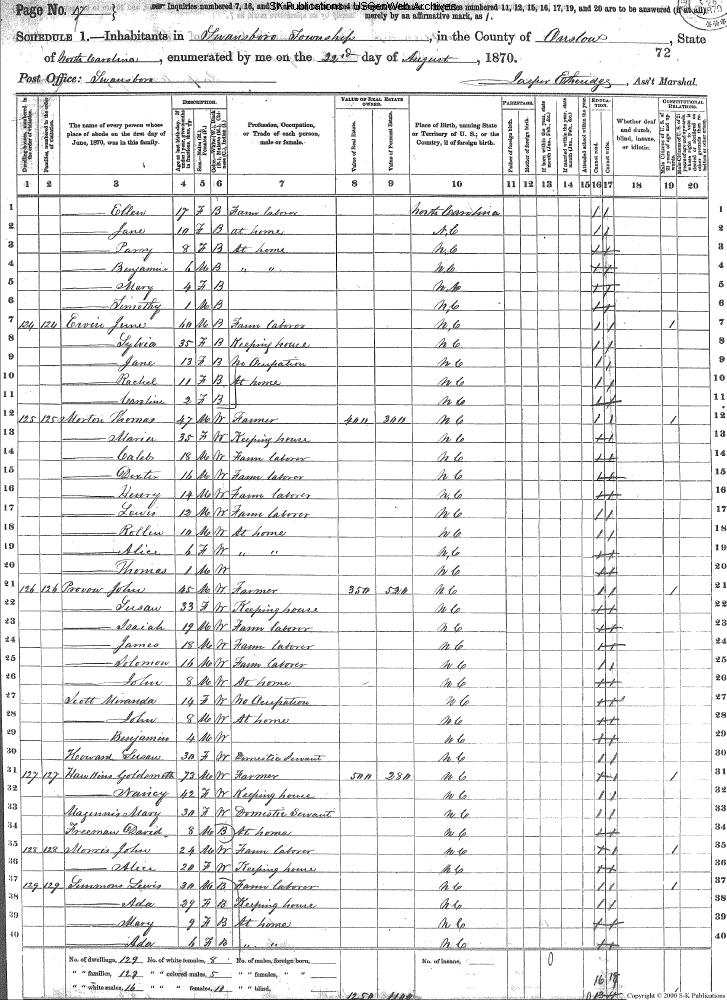 Page No. 17
Inquiries numbered 7, 16, and
S-K Publications USGenWeb Archives
numbered 11, 12, 15, 16, 17, 19, and 20 are to be answered (if at all)
merely by an affirmative mark, as /.
SCHEDULE 1.—Inhabitants in Swansboro Township, in the County of Onslow, State
of North Carolina, enumerated by me on the 22nd day of August, 1870. 72
Post Office: Swansboro Jasper Etheridge, Ass't Marshal.
The name of every person whose place of abode on the first day of June, 1870, was in this family.
DESCRIPTION.
Profession, Occupation, or Trade of each person, male or female.
VALUE OF REAL ESTATE OWNED.
Value of Real Estate.
Value of Personal Estate.
Place of Birth, naming State or Territory of U. S.; or the Country, if of foreign birth.
PARENTAGE.
Father of foreign birth.
Mother of foreign birth.
EDUCATION.
Attended school within the year.
Cannot read.
Cannot write.
Whether deaf and dumb, blind, insane, or idiotic.
CONSTITUTIONAL RELATIONS.
1 2 3 4 5 6 7 8 9 10 11 12 13 14 15 16 17 18 19 20
1 — Ellen 17 F B Farm laborer North Carolina / / 1
2 — Jane 10 F B at home N.C / / 2
3 — Parny 8 F B At home N C 3
4 — Benjamin 6 M B " " N C 4
5 — Mary 4 F B 5
6 — Timothy 1 M B N C 6
7 124 124 Ervin June 60 M B Farm laborer N C / / 1 7
8 — Sylvia 35 F B Keeping house N C / / 8
9 — Jane 13 F B No Ocupation N C / / 9
10 — Rachel 11 F B At home N C / / 10
11 — Caroline 2 F B N C 11
12 125 125 Morton Thomas 47 M W Farmer 400 300 N C / / 1 12
13 — Maria 35 F W Keeping house N C 13
14 — Caleb 18 M W Farm laborer N C 14
15 — Dexter 16 M W Farm laborer N C 15
16 — Henry 14 M W Farm laborer N C 16
17 — Lewis 12 M W Farm laborer N C / / 17
18 — Rollin 10 M W At home N C / / 18
19 — Alice 6 F W " " N C 19
20 — Thomas 1 M W N C 20
21 126 126 Provow John 45 M W Farmer 350 520 N C / / 1 21
22 — Susan 33 F W Keeping house N C 22
23 — Isaiah 19 M W Farm laborer N C 23
24 — James 18 M W Farm laborer N C 24
25 — Solomon 16 M W Farm laborer N C / / 25
26 — John 8 M W At home N C 26
27 Scott Miranda 14 F W No Ocupation N C 27
28 — John 8 M W At home N C 28
29 — Benjamin 4 M W N C 29
30 Howard Susan 30 F W Domestic Servant N C / / 30
31 127 127 Hawkins Goldsmith 73 M W Farmer 500 280 N C 1 31
32 — Nancy 42 F W Keeping house N C / / 32
33 Maginnis Mary 30 F W Domestic Servant N C / / 33
34 Freeman David 8 M B At home N C 34
35 128 128 Morris John 24 M W Farm laborer N C 1 35
36 — Alice 20 F W Keeping house N C / / 36
37 129 129 Simmons Lewis 30 M B Farm laborer N C / / 1 37
38 — Ada 29 F B Keeping house N C / / 38
39 — Mary 9 F B At home N C 39
40 — Ada 6 F B " " N C 40
No. of dwellings, 129 No. of white females, 8 No. of males, foreign born, No. of insane, 0
" " families, 129 " " colored males, 5 " " females, " "
" " white males, 16 " " females, " " blind, 1250 1100
Copyright © 2000 S-K Publications